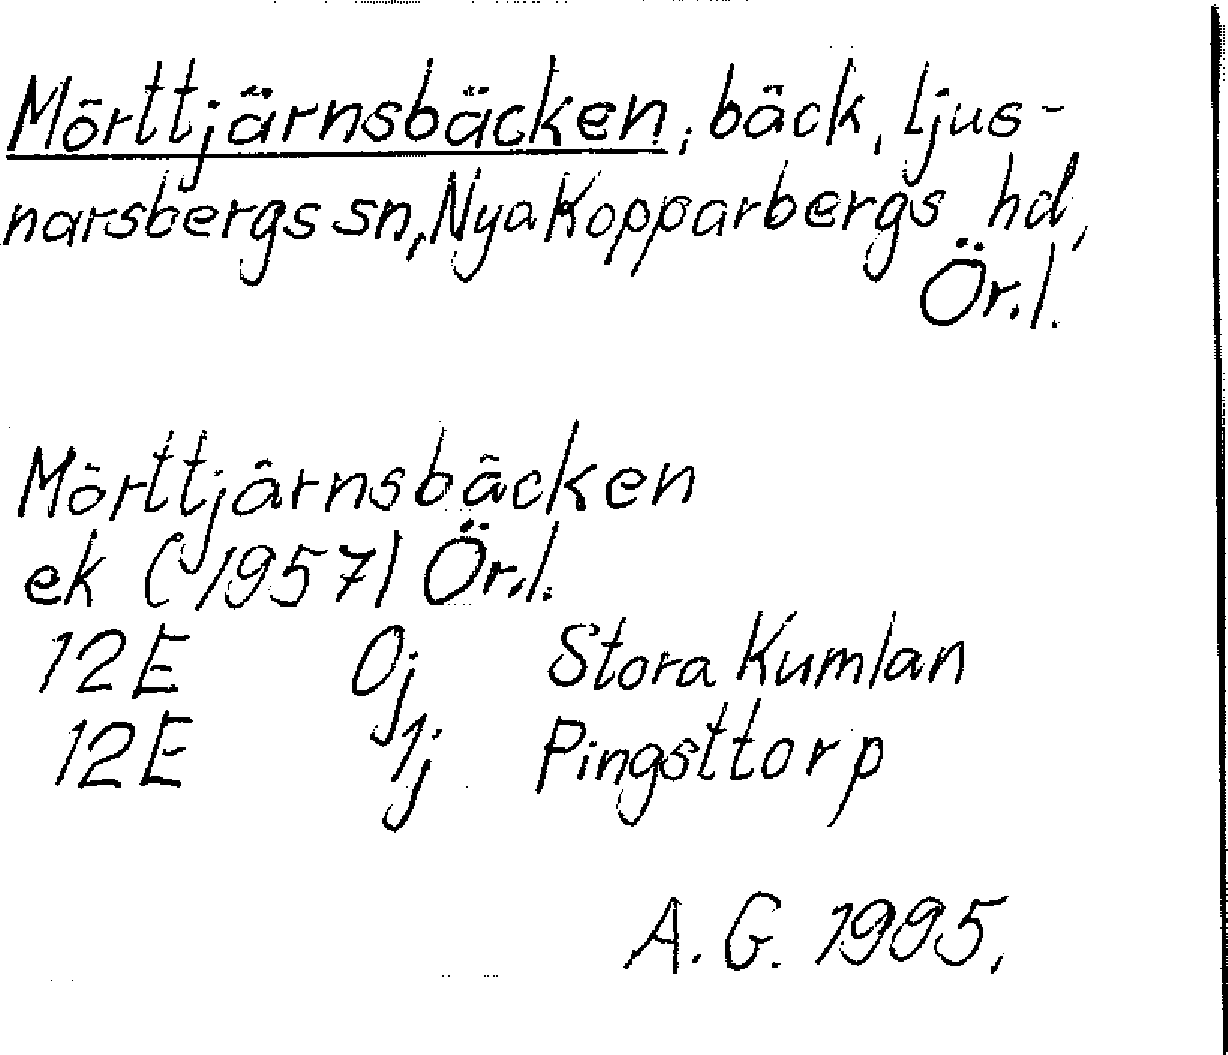 Mörttjärnsbäcken, bäck, Ljus-
narsbergs sn, Nya Kopparbergs hd,
Ör.l.
Mörttjärnsbäcken
ek (1957) Ör.l.
12E 0j Stora Kumlan
12E 1j Pingsttorp
A.G. 1995.